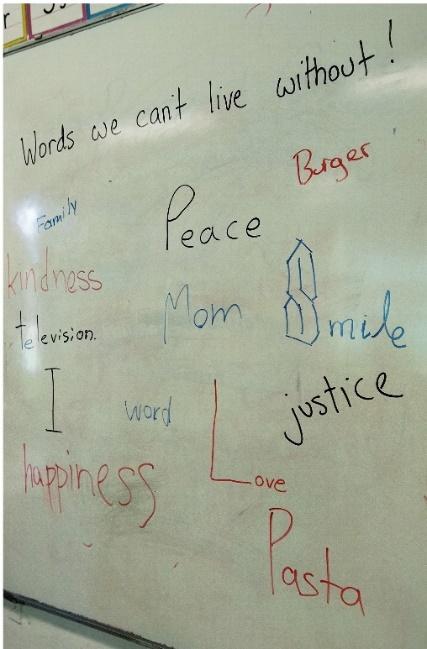 Words we can't live without!
Burger
Family
Peace
kindness
Mom
Smile
television.
I
word
justice
happiness
Love
Pasta